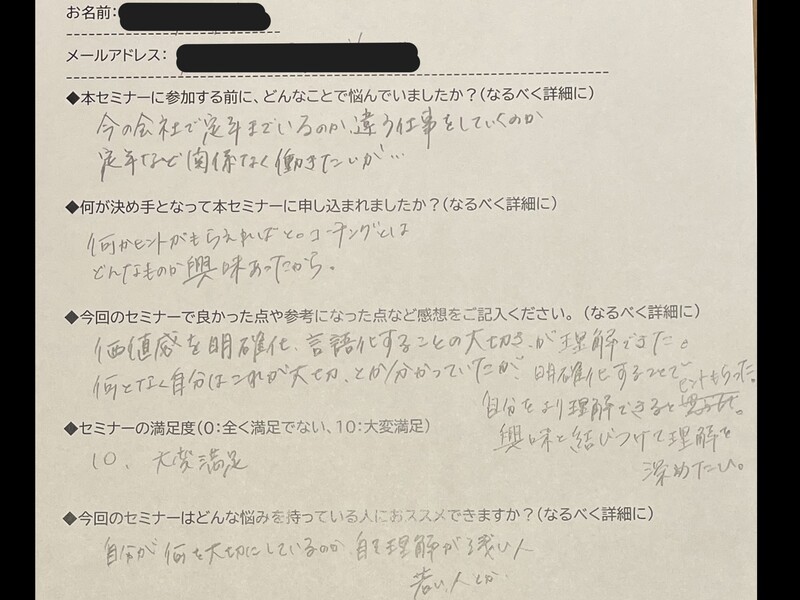 お名前:
メールアドレス:
◆本セミナーに参加する前に、どんなことで悩んでいましたか?(なるべく詳細に)
今の会社で定年までいるのか、違う仕事をしていくのか
定年など関係なく働きたいが…
◆何が決め手となって本セミナーに申し込まれましたか?(なるべく詳細に)
何かヒントがもらえればと。コーチングとは
どんなものか興味あったから。
◆今回のセミナーで良かった点や参考になった点など感想をご記入ください。(なるべく詳細に)
価値感を明確化、言語化することの大切さが理解できた。
何となく自分はこれが大切、とか分かっていたが、明確化することで
ヒントもらった。
自分をより理解できると
興味と結びつけて理解を
深めたい。
◆セミナーの満足度(0:全く満足でない、10:大変満足)
10、大変満足
◆今回のセミナーはどんな悩みを持っている人におススメできますか?(なるべく詳細に)
自分が何を大切にしているのか、自己理解が浅い人
若い人とか